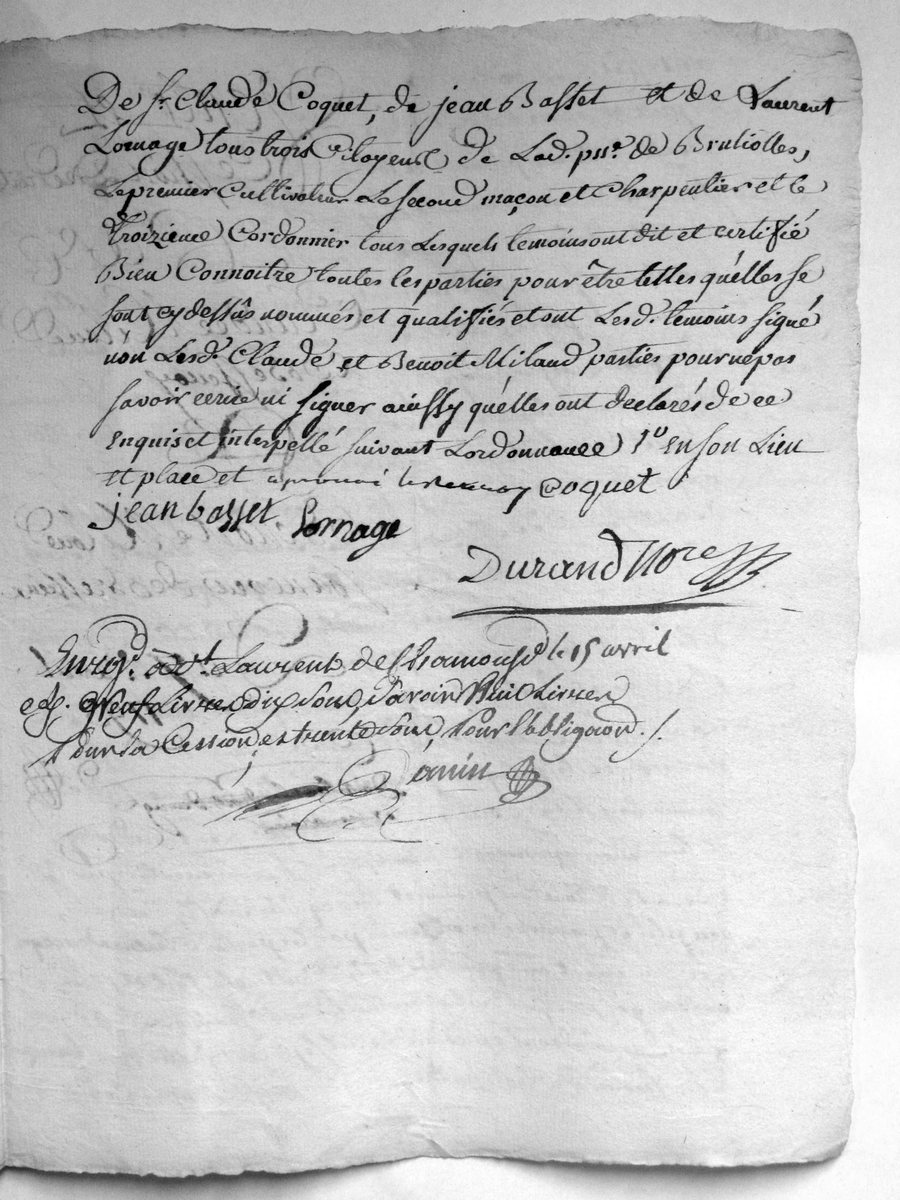 De Sr. Claude Coquet, de jean Basset et de Laurent
Lornage tous trois Citoyens de Lad. psse. de Brulioles,
Le premier Cultivateur Le second maçon et Charpentier et le
Troizieme Cordonnier tous Lesquels temoins ont dit et certifié
Bien Connoitre toutes les parties pour être telles qu'elles se
sont cy dessûs nommés et qualifiés et ont Lesd. temoins signé
non Lesd. Claude et Benoit Miland parties pour ne pas
savoir ecrire ni signer ainssy qu'elles ont declarés de ce
enquis et interpellé suivant Lordonnance en son Lieu
et place et Coquet
jean basset Lornage
Durand Nore
Enregt. a St. Laurent de Chamousset le 15 avril
Neuf Livres dix sous, Savoir huit Livres
sur la Cession et trente sous pour l'obligaon.